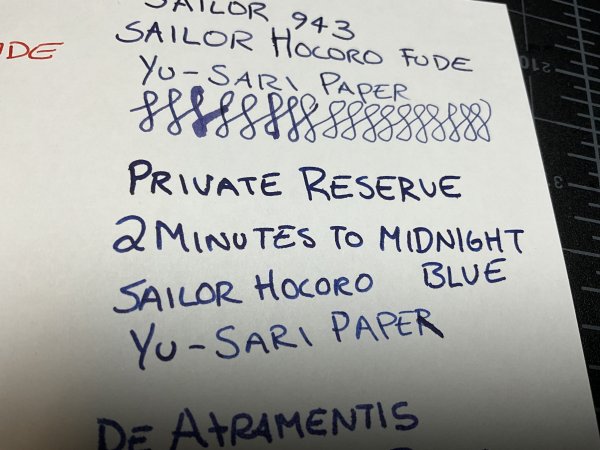 SAILOR 943
SAILOR HOCORO FUDE
YU-SARI PAPER
PRIVATE RESERVE
2 MINUTES TO MIDNIGHT
BLUE
SAILOR HOCORO
YU-SARI PAPER
DE ATRAMENTIS